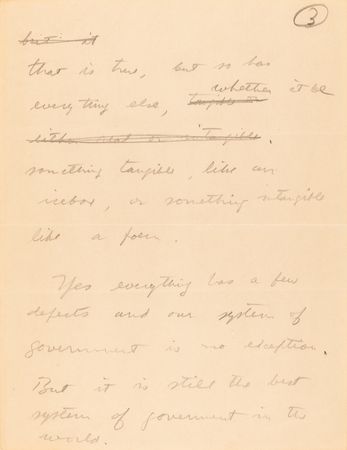 3
but it
that is true, but so has
whether it be
everything else, tangible or
either real or intangible.
something tangible, like an
icebox, or something intangible
like a poem.
Yes everything has a few
defects and our system of
government is no exception.
But it is still the best
system of goverment in the
world.